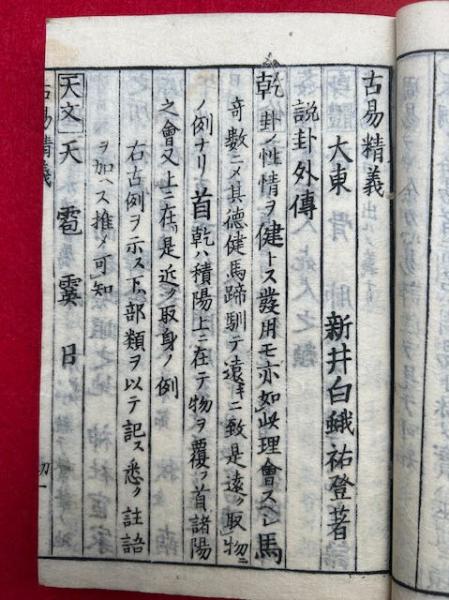 古易精義
大東 新井白蛾祐登著
説卦外傳
乾 卦ノ性情ヲ健トス發用モ亦如此理會スヘシ馬
奇數ニメ其德健馬蹄馴テ遠キニ致是遠ク取物ニ
ノ例ナリ 首 乾ハ積陽上ニ在テ物ヲ覆フ首諸陽
之會又上ニ在是近ク取身ノ例
右古例ヲ示ス下部類ヲ以テ記ス悉ク註語
ヲ加ヘス推メ可知
天文 天 雹 霙 日
古易精義 初一